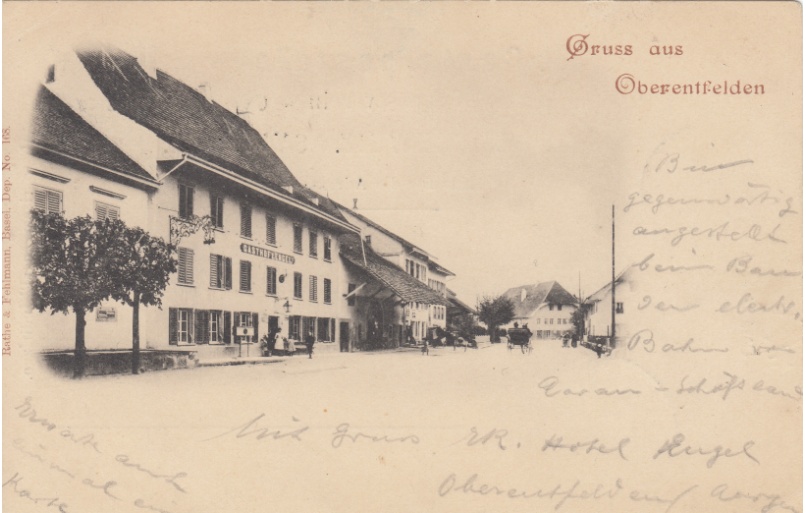 Gruss aus
Oberentfelden
Rathe & Fehlmann, Basel. Dep. No. 168.
GASTHOF z. ENGEL
Bin
gegenwärtig
angestellt
beim Bau
der electr.
Bahn von
Aarau - Schöftland
Mit Gruss ER. Hotel Engel
Oberentfelden Aargau
Erwarte auch
einmal eine
Karte